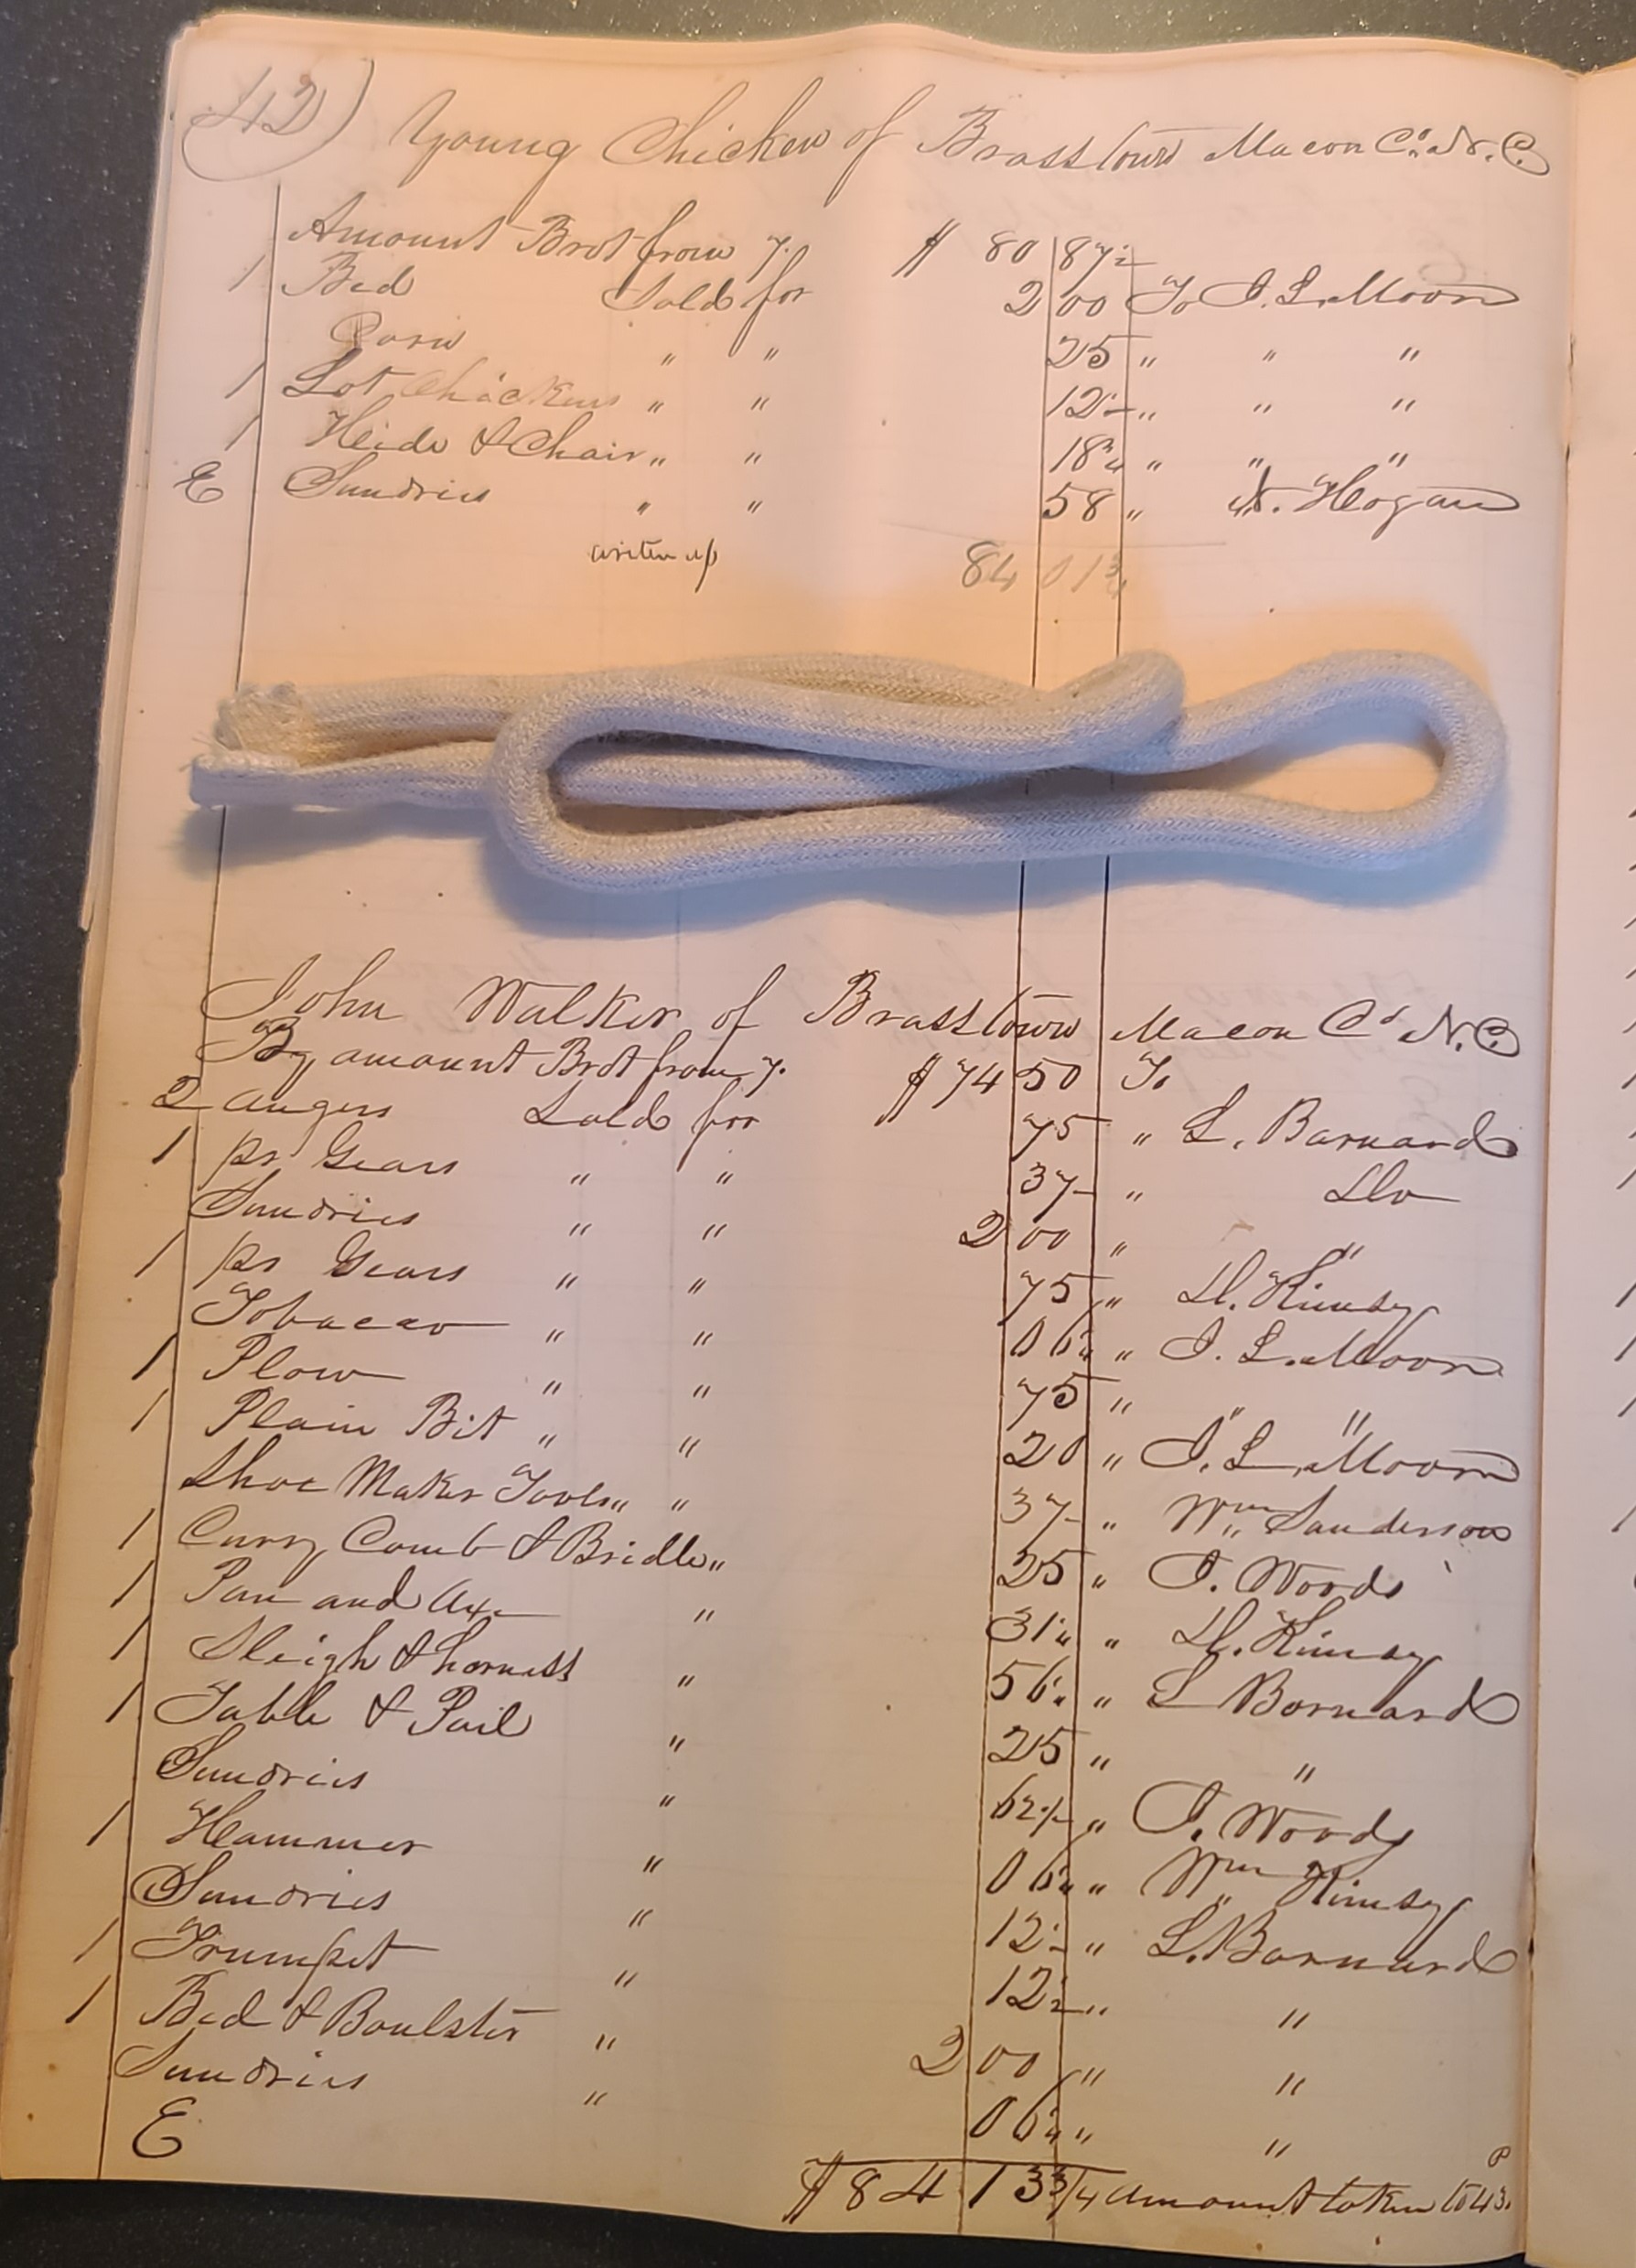 42) Young Chicken of Brasstown Macon Co. N. C.
Amount Brot from 7. $ 80 87½
1 Bed Sold for 2 00 To I. L. Moore
Corn " " 25 " " "
1 Lot Chickens " " 12½ " " "
1 Heide & Chair " " 18¾ " " "
E Sundries " " 58 " N. Hogan
writen up 84 01¾
John Walker of Brasstown Macon Co N. C.
By amount Brot from 7. $ 74 50 To
2 augers Sold for 75 " L. Barnard
1 pr Gears " " 37½ " Do
Sundries " " 2 00 " "
1 pr Gears " " 75 " D. Kimsey
Tobacco " " 06¼ " I. L. Moore
1 Plow " " 75 " " "
1 Plain Bit " " 20 " I. L. Moore
Shoe Maker Tools " " 37½ " Wm Sanderson
1 Curry Comb & Bridle " 25 " I. Woods
1 Pan and Axe " 31¼ " D. Kimsey
1 Sleigh & harness " 56¼ " L Barnard
1 Table & Pail " 25 " "
Sundries " 62½ " I. Woods
1 Hammer " 06¼ " Wm Kimsey
Sundries " 12½ " L. Barnard
1 Trumpet " 12½ " "
1 Bed & Boulster " 2 00 " "
Sundries " 06¼ " "
E
$ 84 13¾ amount taken to P 43.